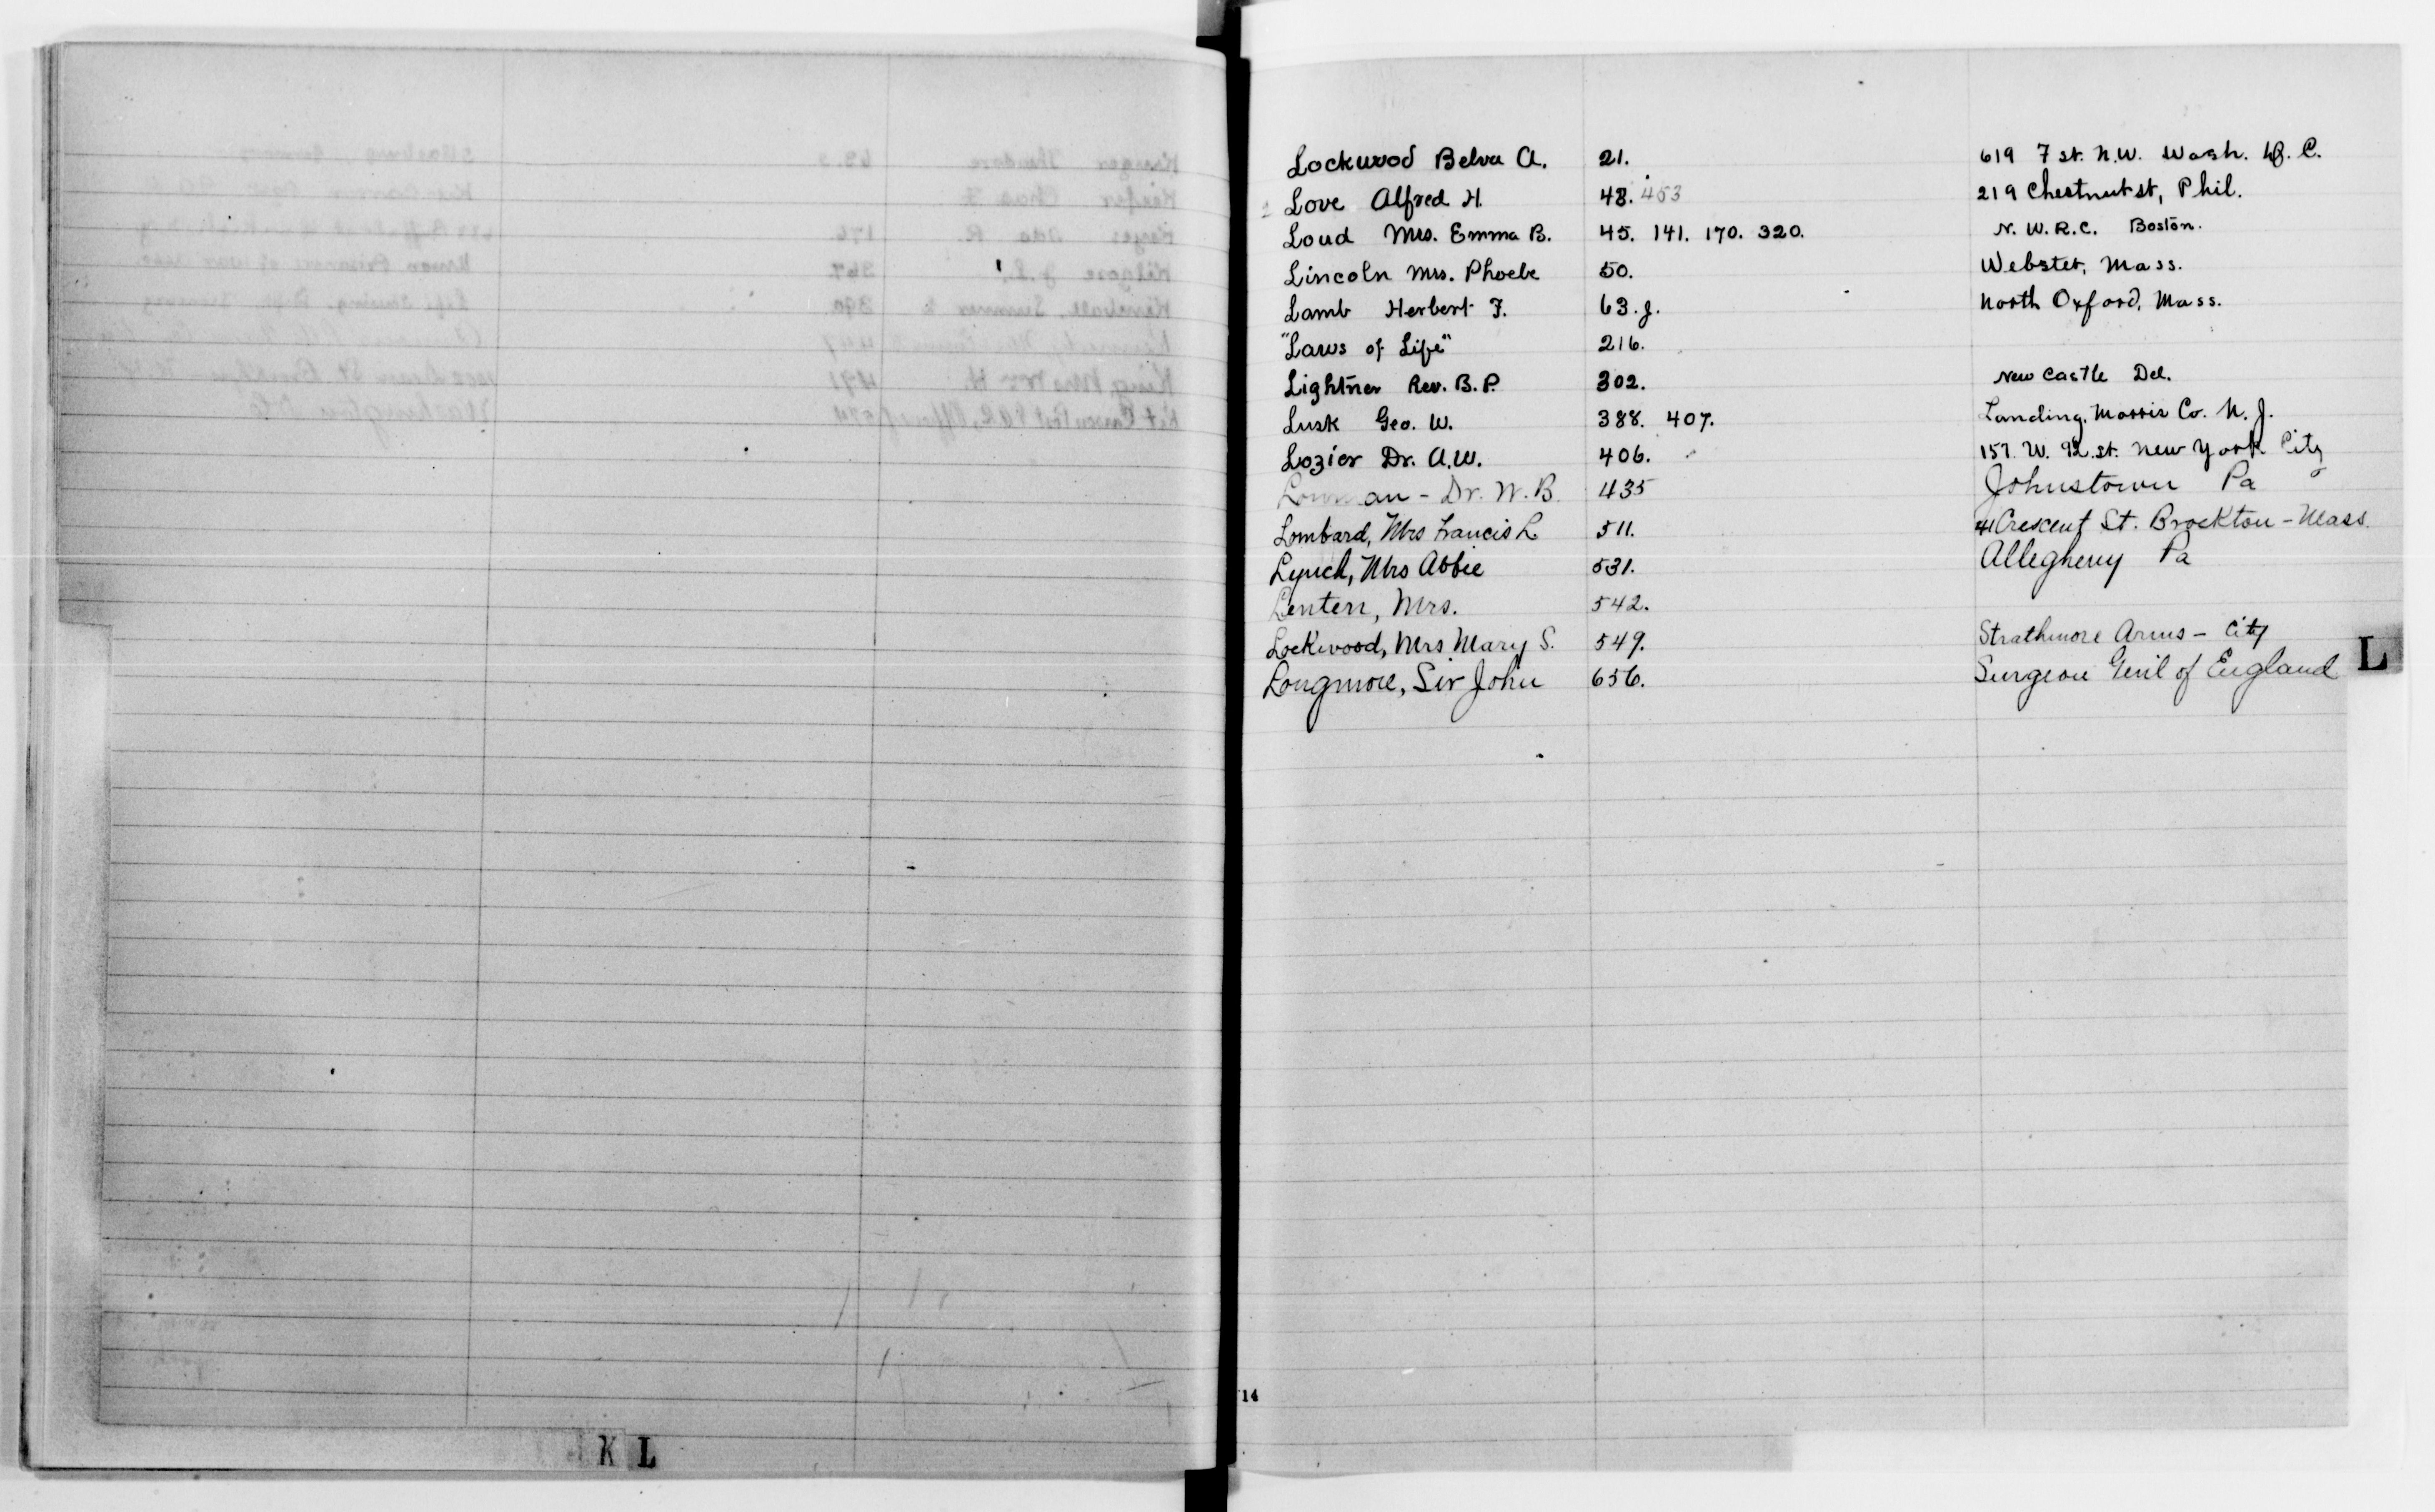 Lockwood Belva A. 21. 619 7 st. N.W. Wash. D. C.
Love Alfred H. 48. 453 219 Chestnut st, Phil.
Loud Mrs. Emma B. 45. 141. 170. 320. N. W. R. C. Boston.
Lincoln Mrs. Phoebe 50. Webster, Mass.
Lamb Herbert F. 63. J. North Oxford, Mass.
"Laws of Life" 216.
Lightner Rev. B. P. 302. New Castle Del.
Lusk Geo. W. 388. 407. Landing, Morris Co. N. J.
Lozier Dr. A. W. 406. 157. W. 92. st. New York City
Lowman - Dr. W. B. 435 Johnstown Pa
Lombard, Mrs Francis L. 511. 41 Crescent St. Brockton - Mass.
Lynch, Mrs Abbie 531. Allegheny Pa
Lenten, Mrs. 542.
Lockwood, Mrs Mary S. 549. Strathmore Arms - City
Longmore, Sir John 656. Surgeon Genl of England
L
14
K L